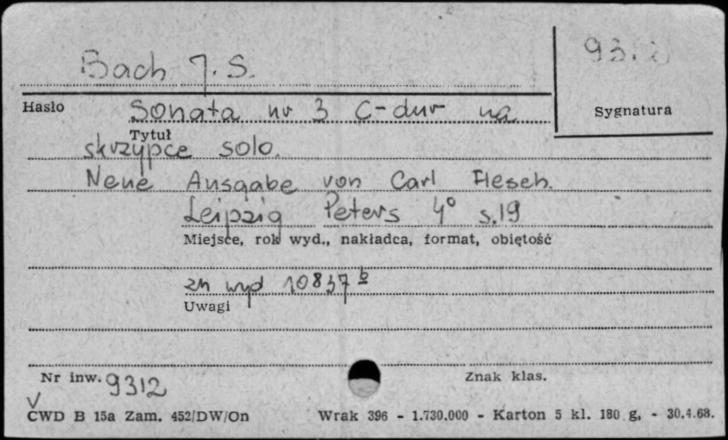 Bach J. S.
Hasło Sonata nr 3 C-dur na
Sygnatura
Tytuł
skrzypce solo.
Neue Ausgabe von Carl Flesch.
Leipzig Peters 4° s. 19
Miejsce, rok wyd., nakładca, format, objętość
zn wyd 10837 b
Uwagi
Nr inw. 9312
Znak klas.
CWD B 15a Zam. 452/DW/On Wrak 396 - 1.730.000 - Karton 5 kl. 180 g. - 30.4.68.